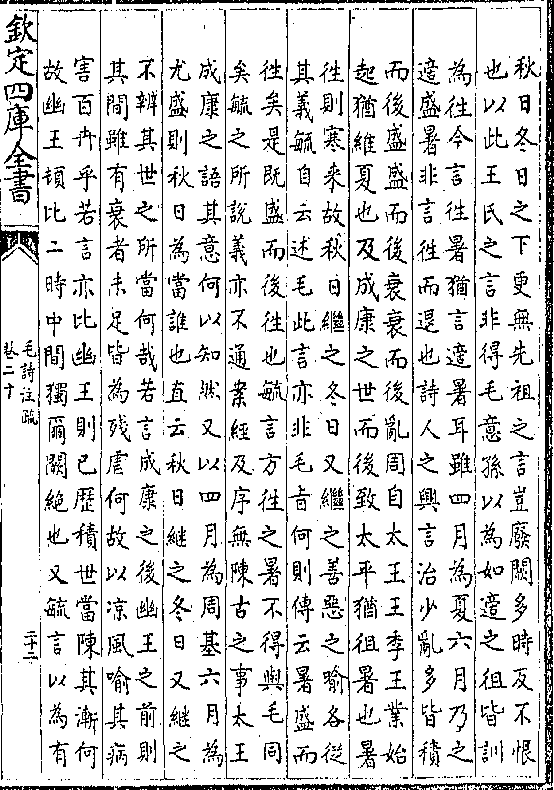 秋日冬日之下更無先祖之言豈廢闕多時反不恨
也以此王氏之言非得毛意孫以為如適之徂皆訓
為往今言往暑猶言適暑耳雖四月為夏六月乃之
適盛暑非言往而退也詩人之興言治少亂多皆積
而後盛盛而後衰衰而後亂周自太王王季王業始
起猶維夏也及成康之世而後致太平猶徂暑也暑
往則寒來故秋日繼之冬日又繼之善惡之喻各從
其義毓自云述毛此言亦非毛旨何則傳云暑盛而
往矣是既盛而後往也毓言方往之暑不得與毛同
矣毓之所說義亦不通案經及序無陳古之事太王
成康之語其意何以知然又以四月為周基六月為
尤盛則秋日為當誰也直云秋日繼之冬日又繼之
不辨其世之所當何哉若言成康之後幽王之前則
其間雖有衰者未足皆為殘虐何故以凉風喻其病
害百卉乎若言亦比幽王則已歷積世當陳其漸何
故幽王頓比二時中間獨爾闕絕也又毓言以為有
欽定四庫全書
毛詩注疏
卷二十
二十二